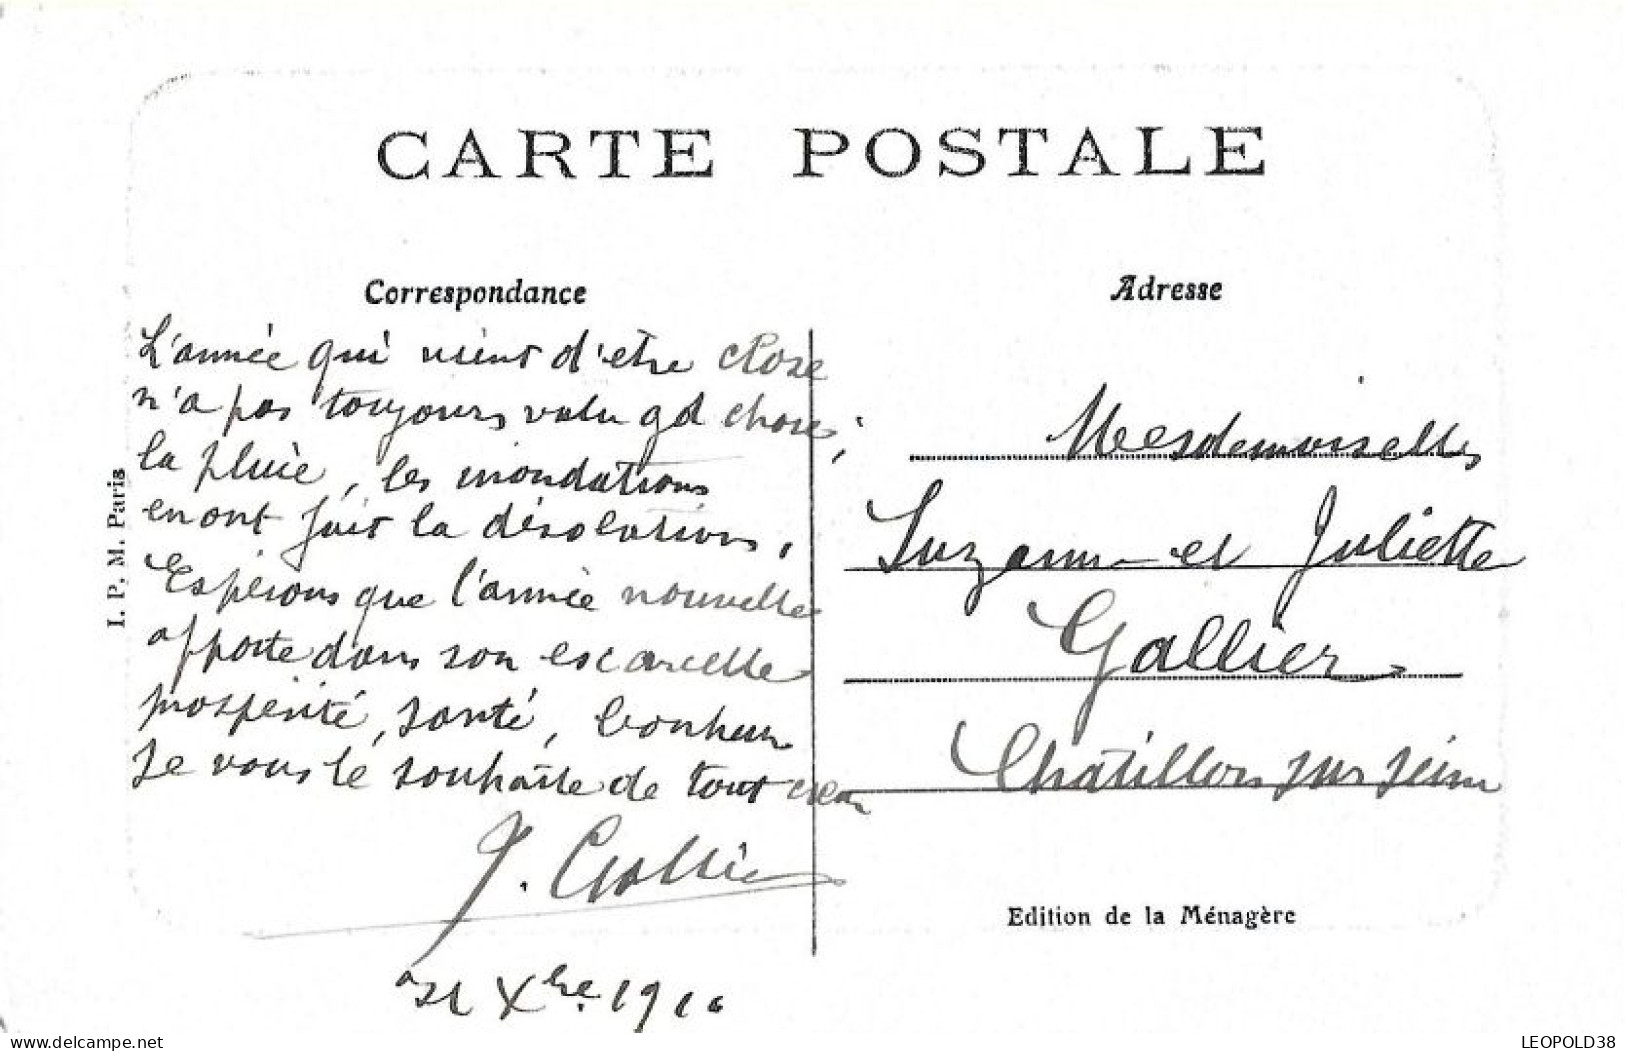 CARTE POSTALE
Correspondance
L'année qui vient d'etre close
n'a pas toujours valu gd choses;
la pluie, les inondations
en ont fait la désolation,
Espérons que l'année nouvelle
apporte dans son escarcelle
prospérité, santé, bonheur
Je vous le souhaite de tout cœur
J. Gallier
31 Xbre 1910
I. P. M. Paris
Adresse
Mesdemoiselles
Suzanne et Juliette
Gallier
Chatillon sur Seine
Edition de la Ménagère
delcampe.net
LEOPOLD38